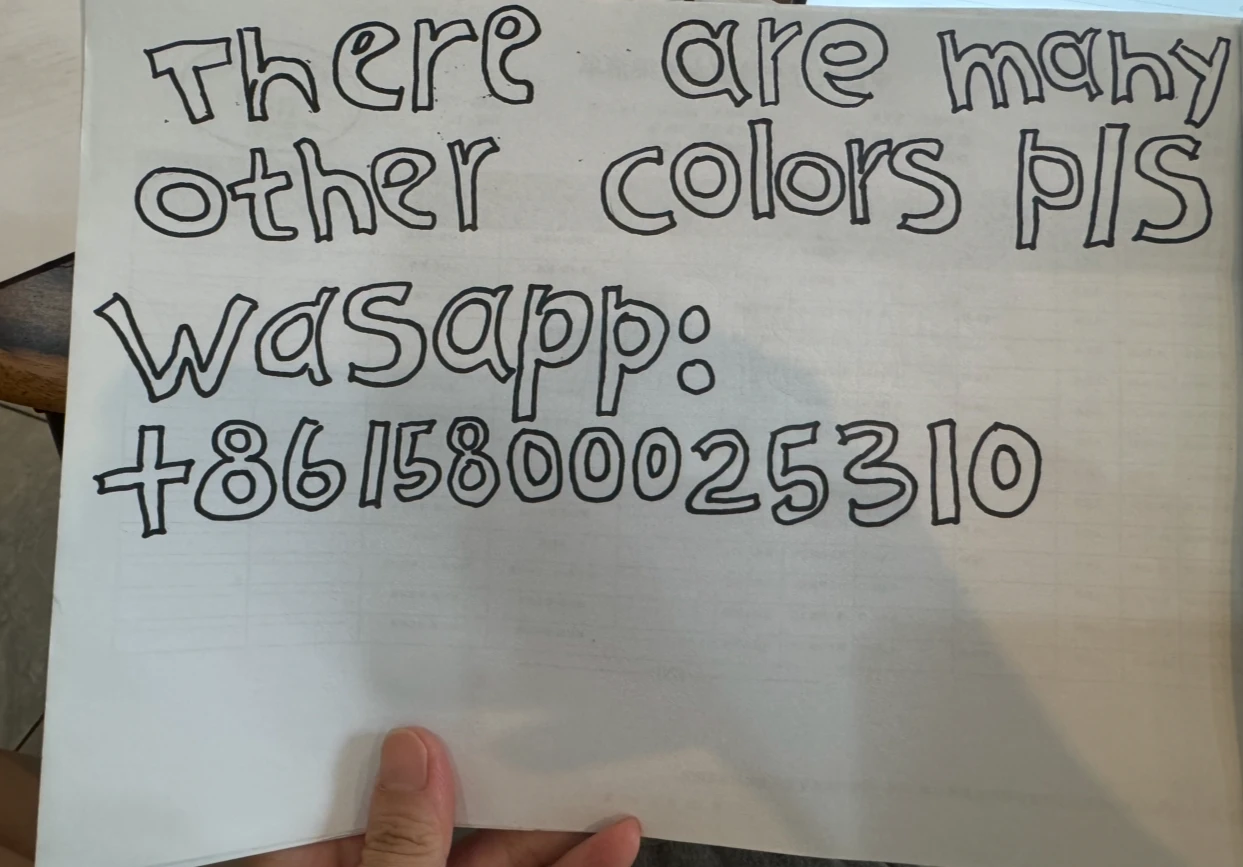 There are many
other colors pls
wasapp:
+8615800025310